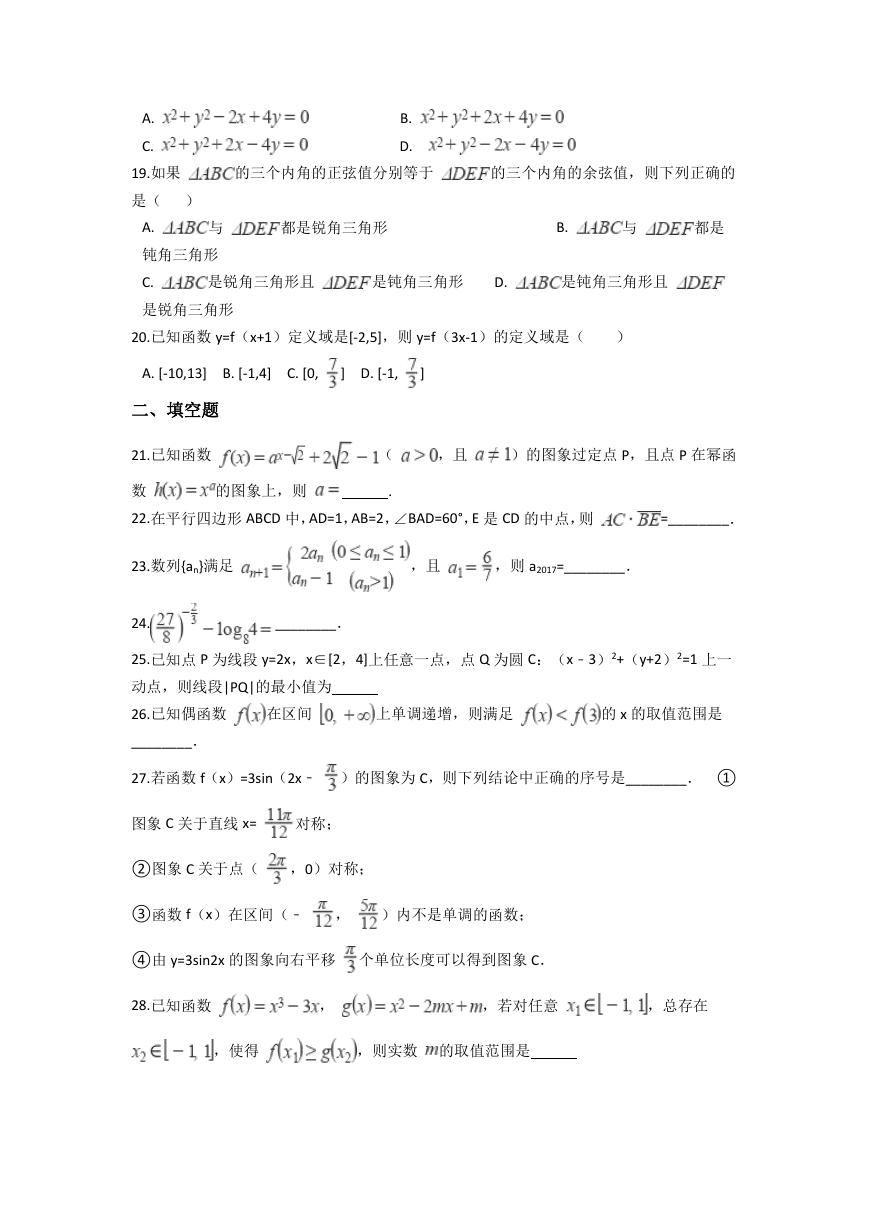 A. x²+y²−2x+4y=0 B. x²+y²+2x+4y=0
C. x²+y²+2x−4y=0 D. x²+y²−2x−4y=0
19.如果 ΔABC的三个内角的正弦值分别等于 ΔDEF的三个内角的余弦值，则下列正确的
是（ ）
A. ΔABC与 ΔDEF都是锐角三角形 B. ΔABC与 ΔDEF都是
钝角三角形
C. ΔABC是锐角三角形且 ΔDEF是钝角三角形 D. ΔABC是钝角三角形且 ΔDEF
是锐角三角形
20.已知函数 y=f（x+1）定义域是[-2,5]，则 y=f（3x-1）的定义域是（ ）
A. [-10,13] B. [-1,4] C. [0, 7/3] D. [-1, 7/3]
二、填空题
21.已知函数 f(x)=a^(x−√2)+2√2−1（ a>0，且 a≠1）的图象过定点 P，且点 P 在幂函
数 h(x)=x^a的图象上，则 a=______.
22.在平行四边形 ABCD 中，AD=1，AB=2，∠BAD=60°，E 是 CD 的中点，则 AC·BE=________．
23.数列{aₙ}满足 aₙ₊₁={2aₙ (0≤aₙ≤1) aₙ−1 (aₙ>1)，且 a₁=6/7，则 a₂₀₁₇=________．
24.(27/8)^(−2/3)−log₈4=________．
25.已知点 P 为线段 y=2x，x∈[2，4]上任意一点，点 Q 为圆 C：（x﹣3）²+（y+2）²=1 上一
动点，则线段|PQ|的最小值为______
26.已知偶函数 f(x)在区间 [0,+∞)上单调递增，则满足 f(x)<f(3)的 x 的取值范围是
________．
27.若函数 f（x）=3sin（2x﹣ π/3）的图象为 C，则下列结论中正确的序号是________． ①
图象 C 关于直线 x= 11π/12 对称；
②图象 C 关于点（ 2π/3，0）对称；
③函数 f（x）在区间（﹣ π/12， 5π/12）内不是单调的函数；
④由 y=3sin2x 的图象向右平移 π/3 个单位长度可以得到图象 C．
28.已知函数 f(x)=x³−3x， g(x)=x²−2mx+m，若对任意 x₁∈[−1,1]，总存在
x₂∈[−1,1]，使得 f(x₁)≥g(x₂)，则实数 m的取值范围是______